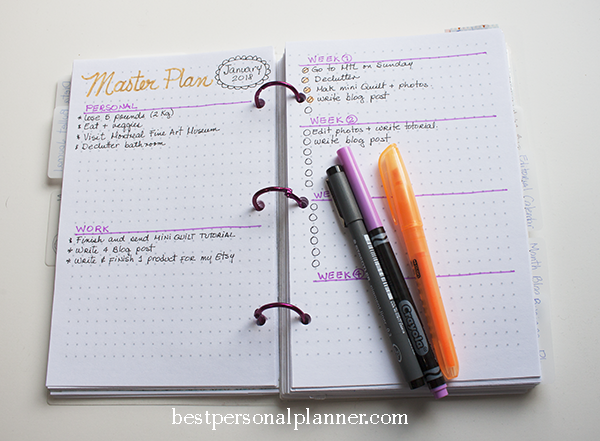 Master Plan
January
2018
PERSONAL
* Lose 5 pounds (2 Kg)
* Eat + veggies
* Visit Montreal Fine Art Museum
* Declutter bathroom
WORK
* Finish and send MINI QUILT TUTORIAL
* Write 4 Blog post
* Write & Finish 1 product for my Etsy
WEEK 1
Go to MTL on Sunday
Declutter
Mak mini Quilt + photos
Write blog post
WEEK 2
Edit photos + write tutorial
Write blog post
WEEK
WEEK 4
Crayola
Editorial Calendar
Month Plan
bestpersonalplanner.com